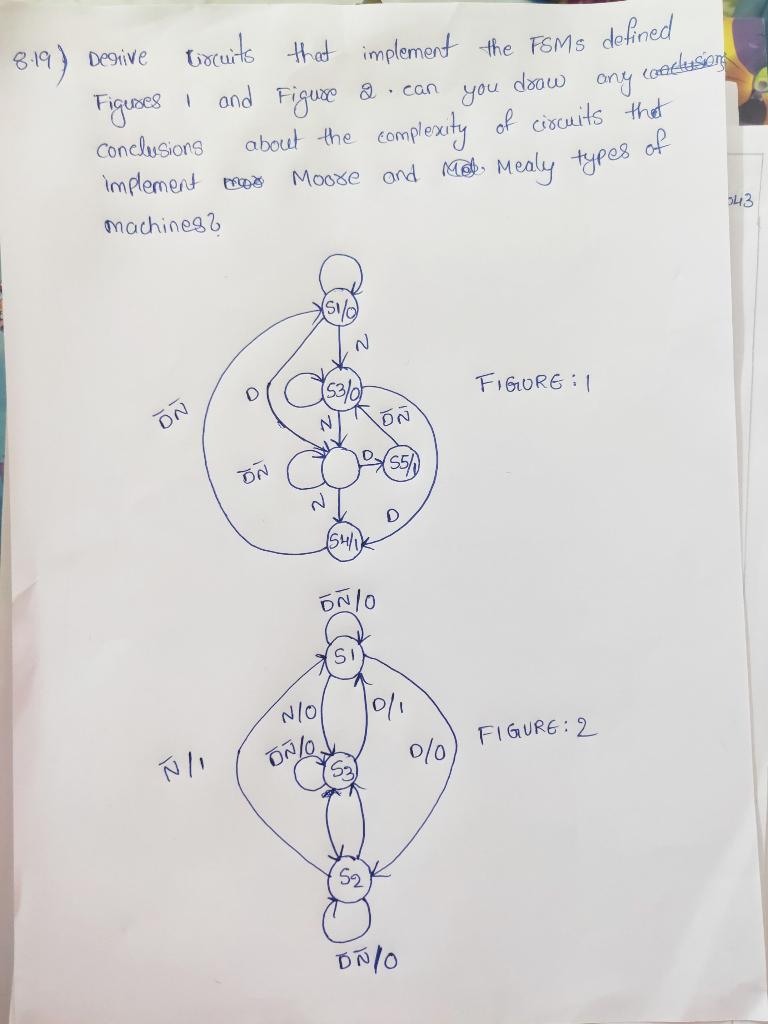 8.19) Derive Circuits that implement the FSMs defined
Figures 1 and Figure 2. can you draw any
conclusions about the complexity of circuits that
implement Moore and Mealy types of
machines?
043
S1/0
N
D
S3/0
FIGURE: 1
D̄N̄
N
D̄N̄
D̄N̄
D
S5/1
N
D
S4/1
D̄N̄/0
S1
N/0
D/1
D̄N̄/0
D/0
FIGURE: 2
N̄/1
S3
S2
D̄N̄/0